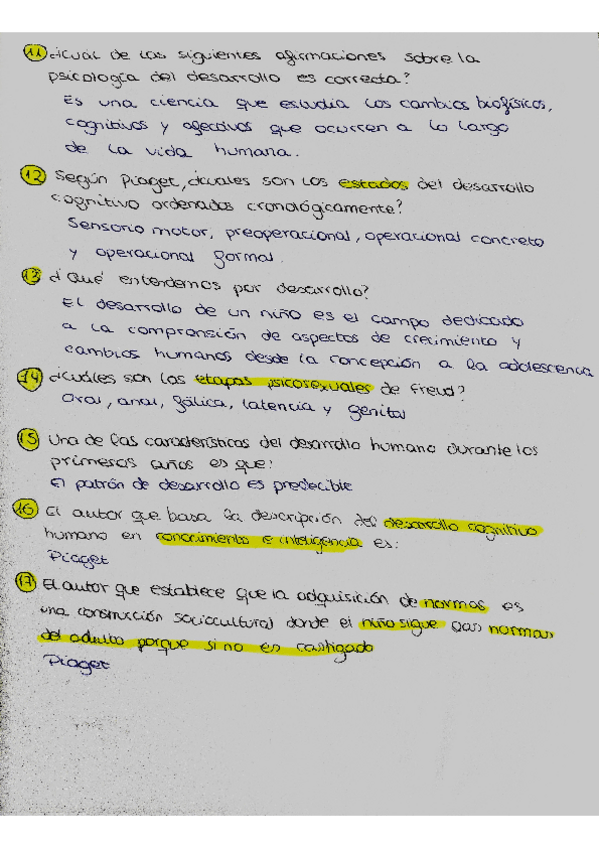 11 ¿Cuál de las siguientes afirmaciones sobre la
psicología del desarrollo es correcta?
Es una ciencia que estudia los cambios biofísicos,
cognitivos y afectivos que ocurren a lo largo
de la vida humana.
12 Según Piaget, ¿cuales son los estados del desarrollo
cognitivo ordenados cronológicamente?
Sensorio motor, preoperacional, operacional concreto
y operacional formal.
13 ¿Qué entendemos por desarrollo?
El desarrollo de un niño es el campo dedicado
a la comprensión de aspectos de crecimiento y
cambios humanos desde la concepción a la adolescencia
14 ¿Cuáles son las etapas psicosexuales de Freud?
Oral, anal, fálica, latencia y genital
15 Una de las características del desarrollo humano durante los
primeros años es que:
El patrón de desarrollo es predecible
16 El autor que basa la descripción del desarrollo cognitivo
humano en conocimiento e inteligencia es:
Piaget
17 El autor que establece que la adquisición de normas es
una construcción sociocultural donde el niño sigue las normas
del adulto porque si no es castigado
Piaget